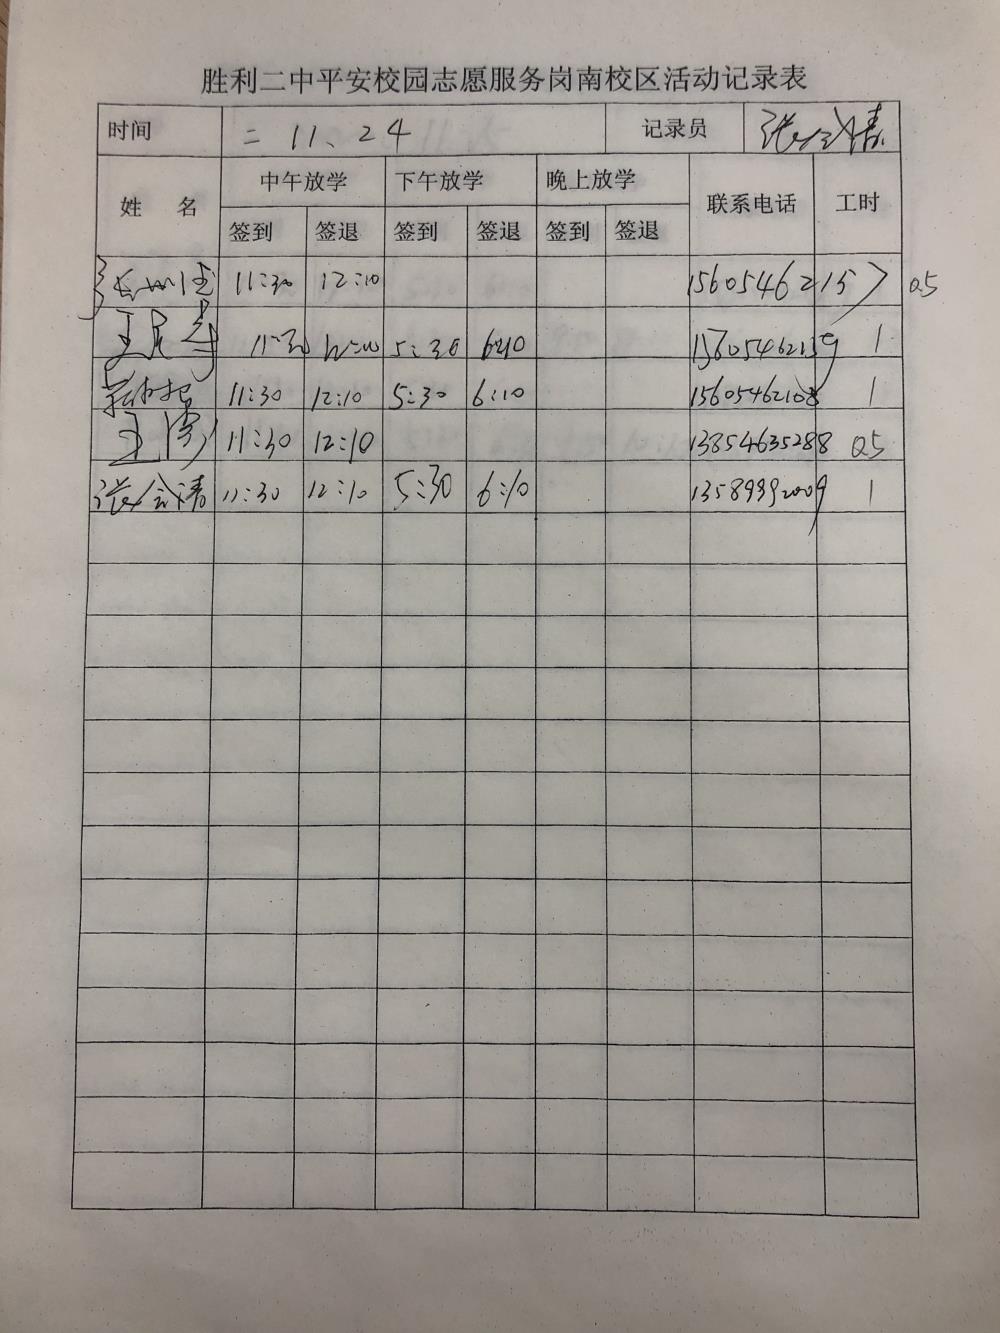 胜利二中平安校园志愿服务岗南校区活动记录表
时间 二 11、24 记录员 张会清
姓 名 中午放学 下午放学 晚上放学 联系电话 工时
签到 签退 签到 签退 签到 签退
11:30 12:10 0.5
11:30 5:30 6:10 1
11:30 12:10 5:30 6:10 15605462108 1
王涛 11:30 12:10 13854635288 0.5
张会清 11:30 12:10 5:30 6:10 13589992009 1